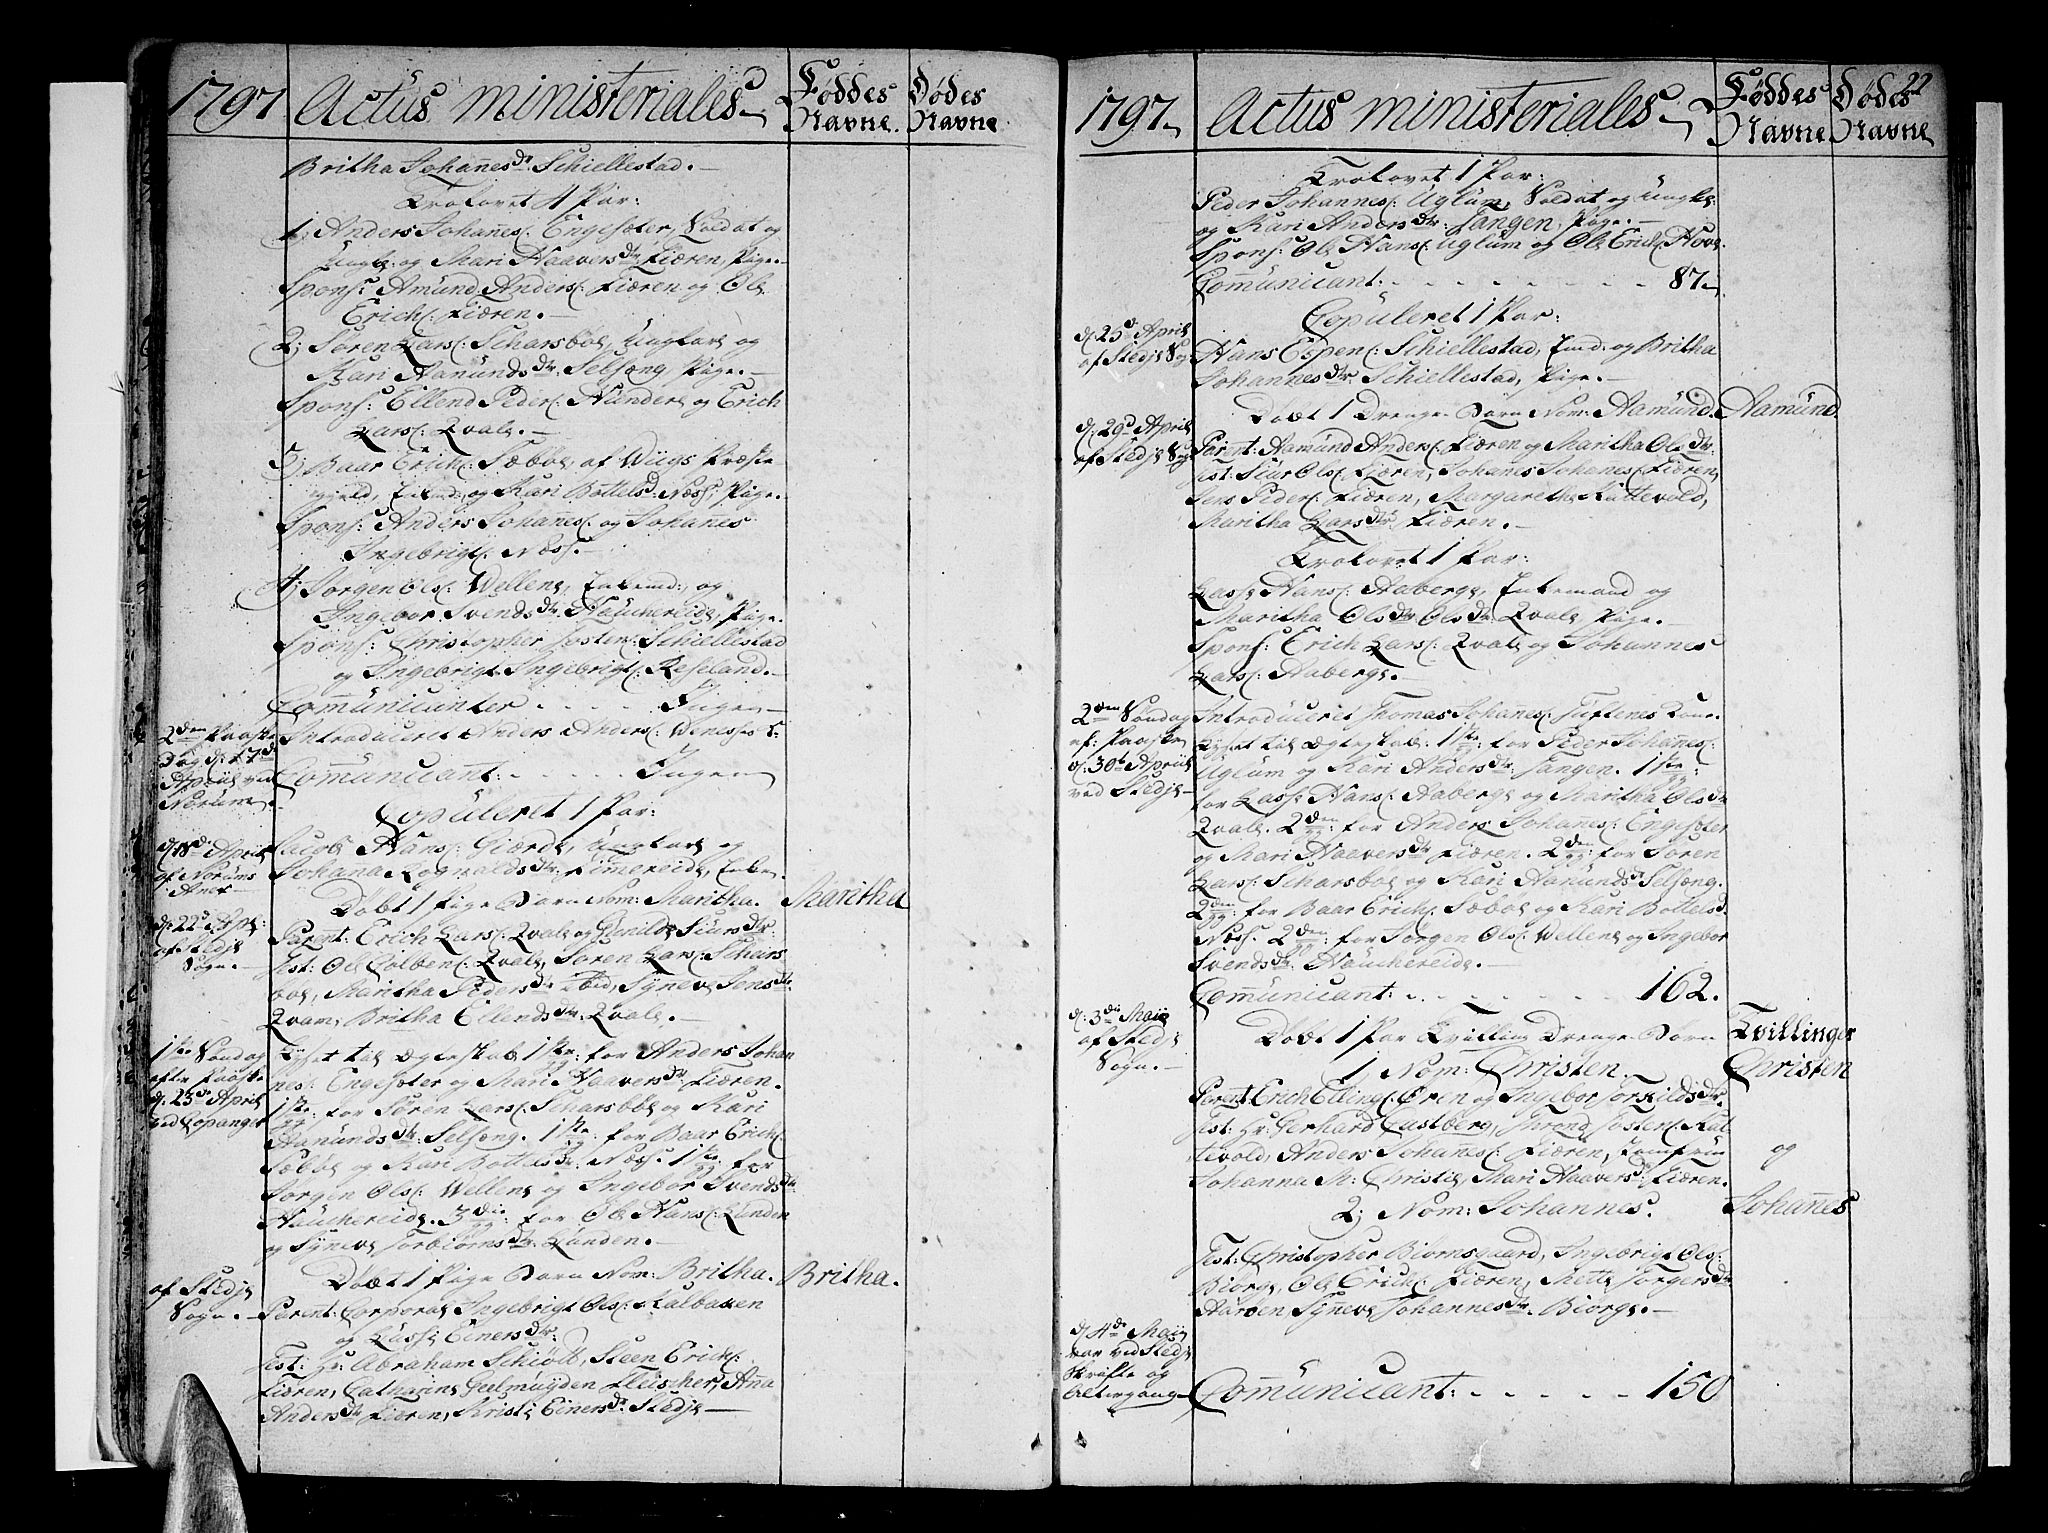 1797
Actus ministeriales
Føddes Navne.
Dødes Navne
Britha Johañesdr Schiellestad.
Trolovet 4 Par:
1, Anders Johañes: Engesæter, Soldat og
Ungk: og Mari Haaversdr: Fiæren, Pige.
Spons: Amund Anders: Fiæren og Ole
Erichs: Fiæren.
2, Søren Lars: Scharsboe, Ungkarl og
Kari Aamundsdr: Selseng Pige.
Spons: Ellend Peders: Hunders og Erich
Lars: Qvale.
3, Baar Erichs: Sæbøe, af Wiigs Præste
gield, Enkemd: og Kari Bottelsd: Næss: Pige.
Spons: Anders Johañes: og Johañes
Ingebrigts: Næss.
4, Jørgen Ols: Wellene, Enkemd: og
Ingebor Svendsdr: Nauchereide, Pige.
Spons: Christopher Josten: Schiellestad
og Ingebrigt Ingebrigts: Reseland.
Com̃unicanter . . . . Ingen
2den Paaske
Dag d: 17de
April ved
Norum.
Introduceret Anders Anders: Wenesses K:
Com̃unicant: . . . . . Ingen
Copuleret 1 Par:
d: 18de April
af Norums
Anex
Jacob Hans: Gierde, Ungkarl og
Johana Rognaldsdr: Rimereide, Enke.
Døbt 1 Pige Barn Nom: Maritha.
Maritha
d: 22d Apr:
af Stedje
Sogn.
Parent: Erich Lars: Qvale og Gunilde Siursdr:
Test: Ole Colben: Qvale, Søren Lars: Schars
boe, Maritha Pedersdr: Ibid, Synneve Jensdr:
Qvam, Britha Ellendsdr: Qvale.
1ste Søndag
efter Paaske
d: 23de April
ved Copanger
Lyset til Ægteskab 1ste gg: for Anders Johan
nes: Engesæter og Mari Haaversdr: Fiæren.
1ste gg: for Søren Lars: Scharsboe og Kari
Aamundsdr: Selseng. 1ste gg: for Baar Erichs:
Sæbøe og Kari Bottelsdr: Næss: 1ste gg: for
Jørgen Ols: Wellene og Ingebor Svendsdr:
Nauchereide. 3die gg: for Ole Hans: Lunden
og Synneve Torbiørnsdr: Lunden.
af Stedje
Sogn.
Døbt 1 Pige Barn Nom: Britha.
Britha.
Parent: Corporal Ingebrigt Ols: Kalbakken
og Lussi Einersdr:
Test: Hr: Abraham Schiøtt, Steen Erichs:
Fiæren, Catharina Geelmuyden Fleischer, Aña
Andersdr: Fiæren, Kristi Einersdr: Stedje
1797
Actus ministeriales
Føddes Navne
Dødes Navne
22
Trolovet 1 Par:
Peder Johannes: Uglum, Soldat og Ungk:
og Kari Andersdr: Tangen, Pige.
Spons: Ole Hans: Uglum og Ole Erichs: Hove
Com̃unicant: . . . . . . 87
Copuleret 1 Par:
d: 25de April
af Stedje Sogn
Hans Espen: Schiellestad, Emd: og Britha
Johannesdr: Schiellestad, Pige.
Døbt 1 Drenge Barn Nom: Aamund.
Aamund.
d: 29d April
af Stedje Sogn
Parent: Aamund Anders: Fiæren og Maritha Olsdr:
Test: Siur Ols: Fiæren, Johañes Johañes: Fiæren,
Jens Peders: Fiæren, Margarethe Kattevold,
Maritha Larsdr: Fiæren.
Trolovet 1 Par:
Lasse Hans: Aaberge, Enkemand og
Maritha Olsdr Olsdr: Qvale, Pige.
Spons: Erich Lars: Qvale og Johannes
Lars: Aaberge.
2den Søndag
ef: Paaske
d: 30te April
ved Stedje
Introduceret Thomas Johañes: Tuftenes Kone.
Lyset til Ægteskab. 1ste gg: for Peder Johañes:
Uglum og Kari Andersdr: Tangen. 1ste gg:
for Lasse Hans: Aaberge og Maritha Olsdr
Qvale. 2den gg: for Anders Johañes: Engesæter
og Mari Haaversdr: Fiæren. 2den gg: for Søren
Lars: Scharsboe og Kari Aamundsdr Selseng.
2den gg: for Baar Erichs: Sæbøe og Kari Bottelsd:
Næss. 2den gg: for Jørgen Ols: Wellene og Ingebor
Svendsdr: Nauchereide.
Com̃unicant: . . . . . 162.
d: 3die Maij
af Stedje
Sogn.
Døbt 1 Par Tvilling Drenge Børn
Tvillinger
1 Nom: Christen.
Christen
Parent: Erich Ellings: Øren og Ingebor Torkildsdr:
Test: Hr: Gerhard Castberg, Trond Josten: Kat
tevold, Anders Johañes: Fiæren, Jomfrue
og
Johanna M: Christie, Mari Haaversd: Fiæren.
2, Nom: Johannes.
Johañes
Test: Christopher Biørnsgaard, Ingebrigt Ols:
Biørge, Ole Erichs: Fiæren, Mette Jørgensdr
Aarøen, Synneve Johannesdr: Biørge.
d: 4de Maij
var ved Stedje
Skrifte og
Altergang
Com̃unicant: . . . . . 150